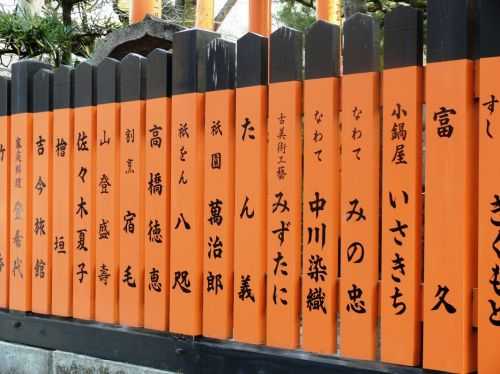 すし きくもと
富久
小鍋屋 いさきち
なわて みの忠
なわて 中川染織
古美術工藝 みずたに
たん義
祇園 萬治郎
祇をん 八咫
高橋徳恵
割烹 宿毛
山登盛壽
佐々木夏子
檜垣
吉今旅館
家庭料理 登希代